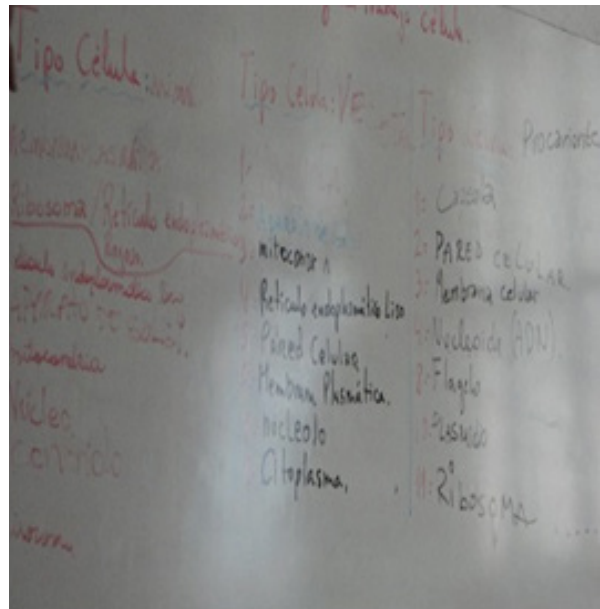 Trabajo célula.
Tipo Célula:
Ribosoma / Retículo endoplasmático
Rugoso
endoplasmático liso
APARATO DE GOLGI.
mitocondria
Núcleo
Centriolo
Tipo Célula: VE
1:
2:
mitocondria
4: Retículo endoplasmático Liso
Pared Celular
Membrana Plasmática.
nucleolo
Citoplasma.
Tipo célula Procarionte
1: Cápsula
2: PARED CELULAR
3: Membrana celular
4: Nucleoide (ADN).
Flagelo
PLASMIDO
RibosoMA